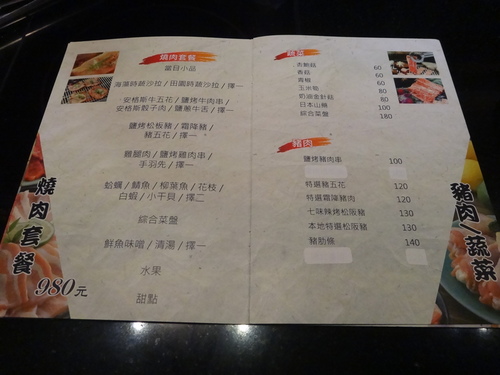 燒肉套餐
當日小品
海藻時蔬沙拉/田園時蔬沙拉/擇一
安格斯牛五花/鹽烤牛肉串/
安格斯骰子肉/鹽蔥牛舌/擇一
鹽烤松板豬/霜降豬/
豬五花/擇一
雞腿肉/鹽烤雞肉串/
手羽先/擇一
蛤蠣/鯖魚/柳葉魚/花枝/
白蝦/小干貝/擇二
綜合菜盤
鮮魚味噌/清湯/擇一
水果
甜點
燒肉套餐
980元
蔬菜
杏鮑菇 60
香菇 60
青椒 60
玉米筍 80
奶油金針菇 80
日本山藥 100
綜合菜盤 180
豬肉
鹽烤豬肉串 100
特選豬五花 120
特選霜降豬肉 120
七味辣烤松阪豬 130
本地特選松阪豬 130
豬肋條 140
豬肉/蔬菜